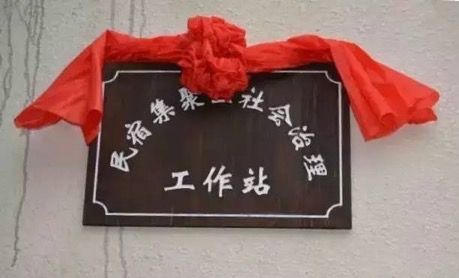 民宿集聚区社会治理
工作站